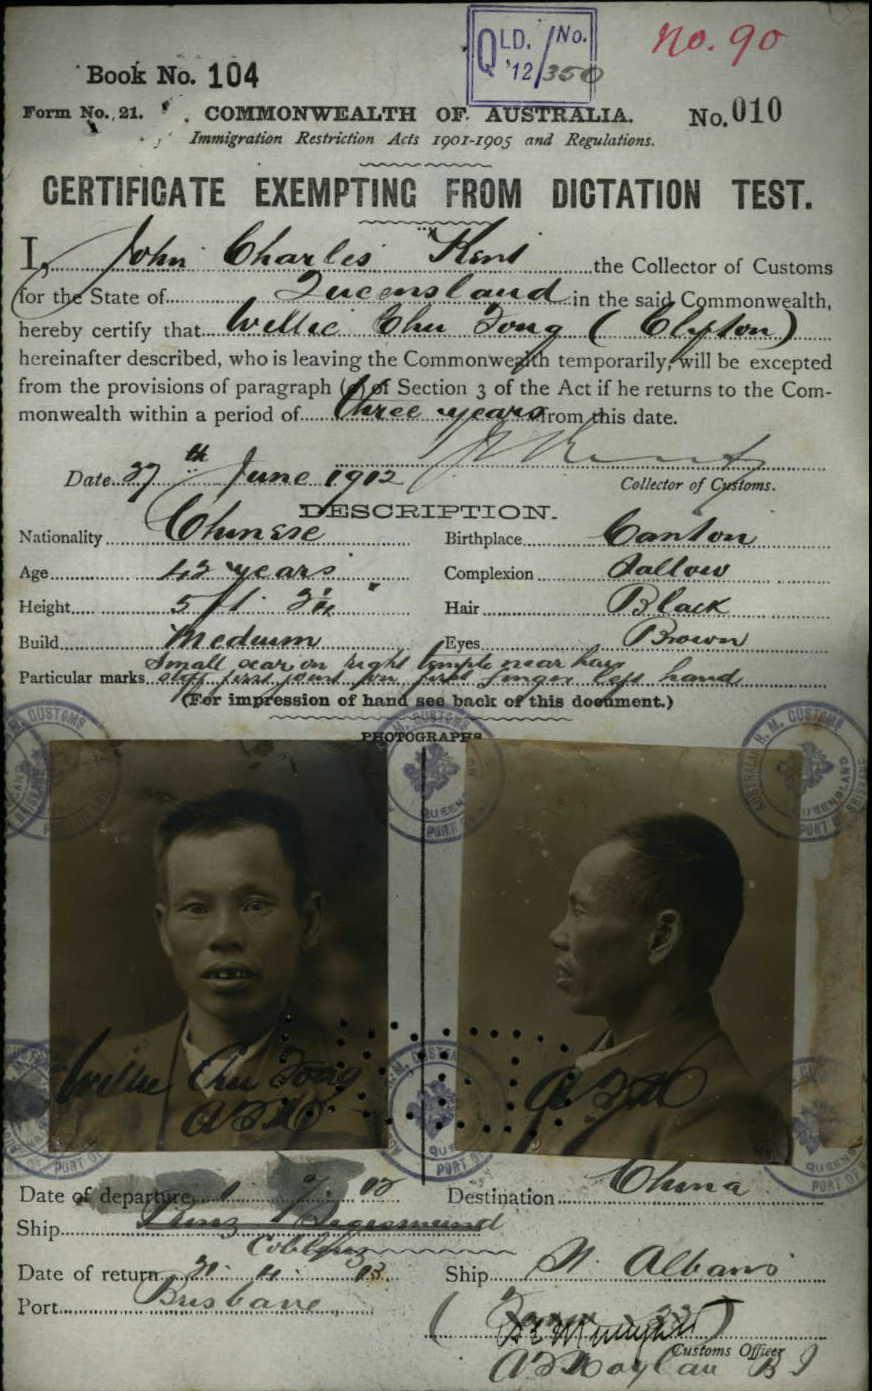 QLD. No.
'12/350
No. 90
Book No. 104
Form No. 21. COMMONWEALTH OF AUSTRALIA. No. 010
Immigration Restriction Acts 1901-1905 and Regulations.
CERTIFICATE EXEMPTING FROM DICTATION TEST.
I, John Charles Kent the Collector of Customs
for the State of Queensland in the said Commonwealth,
hereby certify that Willie Chu Tong (Clyton)
hereinafter described, who is leaving the Commonwealth temporarily, will be excepted
from the provisions of paragraph (a) of Section 3 of the Act if he returns to the Com-
monwealth within a period of three years from this date.
Date 27th June 1912
Collector of Customs.
DESCRIPTION.
Nationality Chinese Birthplace Canton
Age 42 years Complexion Sallow
Height 5 ft Hair Black
Build Medium Eyes Brown
Small scar on right temple near hair
Particular marks stiff first joint on first finger left hand
(For impression of hand see back of this document.)
PHOTOGRAPHS
Willie Chu Tong
Date of departure Destination China
Ship
Coblenz
Date of return Ship St Albans
Port Brisbane
Customs Officer